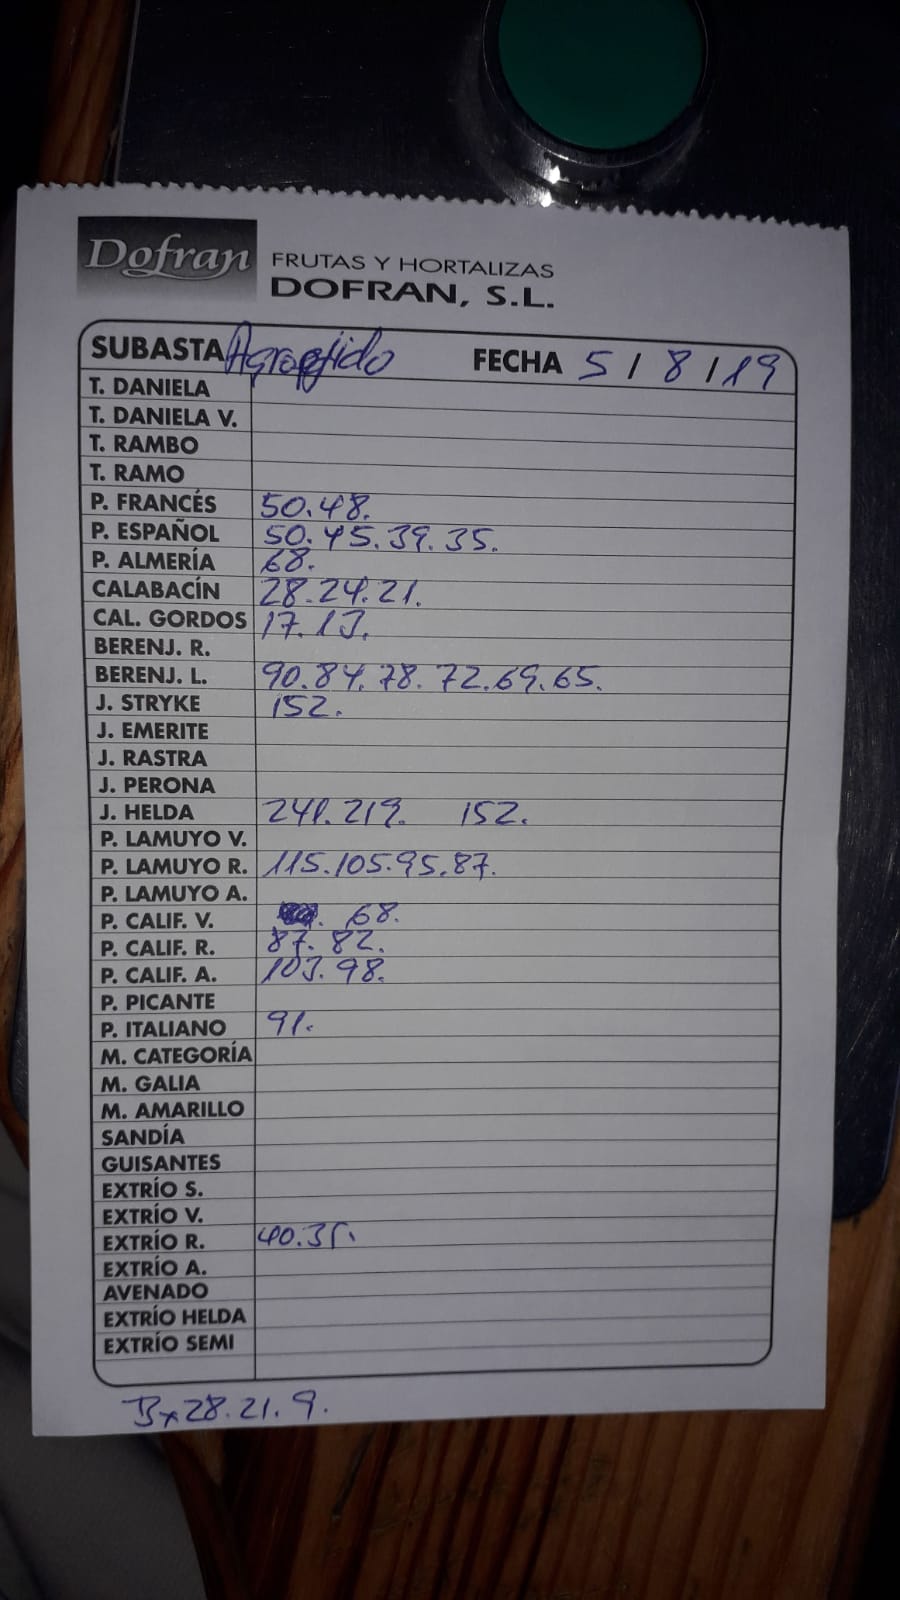 Dofran FRUTAS Y HORTALIZAS
DOFRAN, S.L.
SUBASTA Agroejido FECHA 5 / 8 / 19
T. DANIELA
T. DANIELA V.
T. RAMBO
T. RAMO
P. FRANCÉS 50.48.
P. ESPAÑOL 50.45.39.35.
P. ALMERÍA 68.
CALABACÍN 28.24.21.
CAL. GORDOS 17.13.
BERENJ. R.
BERENJ. L. 90.84.78.72.69.65.
J. STRYKE 152.
J. EMERITE
J. RASTRA
J. PERONA
J. HELDA 241.219. 152.
P. LAMUYO V.
P. LAMUYO R. 115.105.95.87.
P. LAMUYO A.
P. CALIF. V. 68.
P. CALIF. R. 87.82.
P. CALIF. A. 103.98.
P. PICANTE
P. ITALIANO 91.
M. CATEGORÍA
M. GALIA
M. AMARILLO
SANDÍA
GUISANTES
EXTRÍO S.
EXTRÍO V.
EXTRÍO R. 40.35.
EXTRÍO A.
AVENADO
EXTRÍO HELDA
EXTRÍO SEMI
Bx28.21.9.